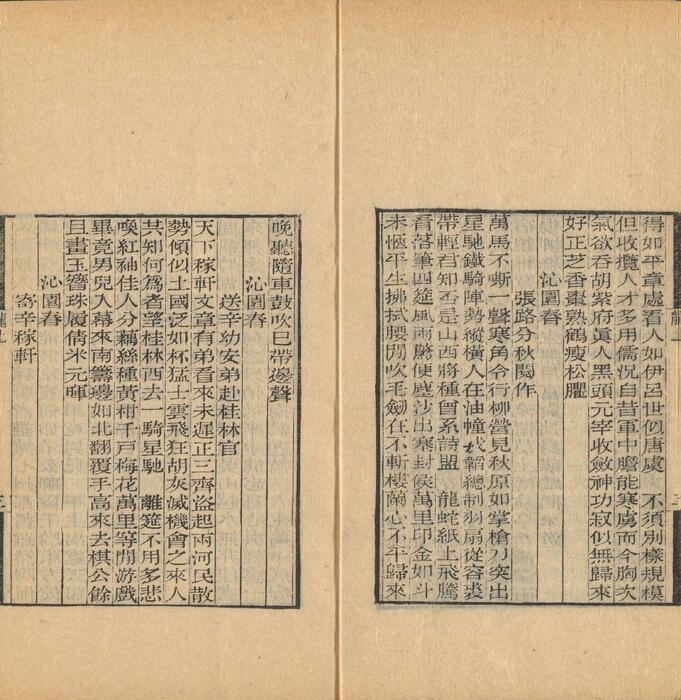 得如平章處看人如伊呂世似唐虞　不須別樣規模
但收攬人才多用儒況自昔軍中膽能寒虜而今胸次
氣欲吞胡紫府眞人黑頭元宰收斂神功寂似無歸來
好正芝香棗熟鶴瘦松臞
沁園春
張路分秋閱作
萬馬不嘶一聲寒角令行柳營見秋原如掌槍刀突出
星馳鐵騎陣勢縱橫人在油幢戎韜總制羽扇從容裘
帶輕君知否是山西將種曾系詩盟　龍蛇紙上飛騰
看落筆四筵風雨驚便塵沙出塞封侯萬里印金如斗
未愜平生拂拭腰間吹毛劒在不斬樓蘭心不平歸來
晚聽隨車鼓吹巳帶邊聲
沁園春
送辛幼安弟赴桂林官
天下稼軒文章有弟看來未遲正三齊盜起兩河民散
勢傾似土國泛如杯猛士雲飛狂胡灰滅機會之來人
共知何為者望桂林西去一騎星馳　離筵不用多悲
喚紅袖佳人分藕絲種黃柑千戸梅花萬里等閒游戲
畢竟男兒入幕來南籌邊如北翻覆手高來去棋公餘
且畫玉簪珠履倩米元暉
沁園春
寄辛稼軒